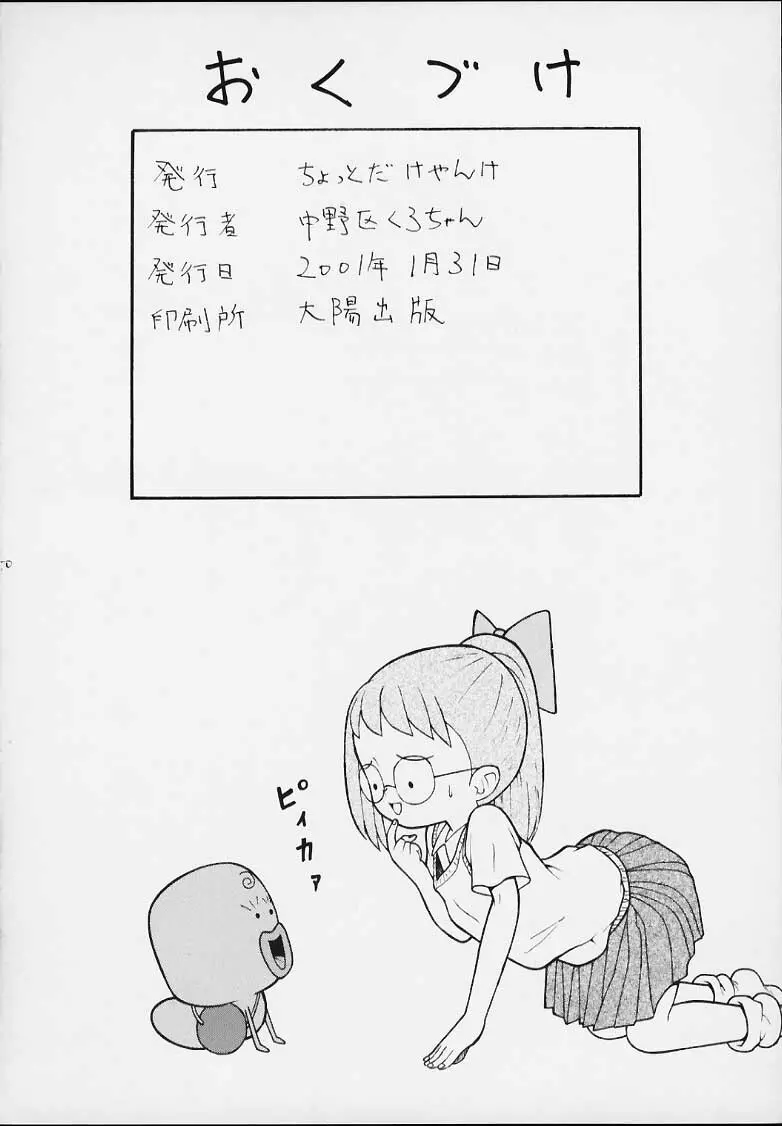 おくづけ
発行 ちょっとだけやんけ
発行者 中野区くろちゃん
発行日 2001年1月31日
印刷所 大陽出版
ピィカァ